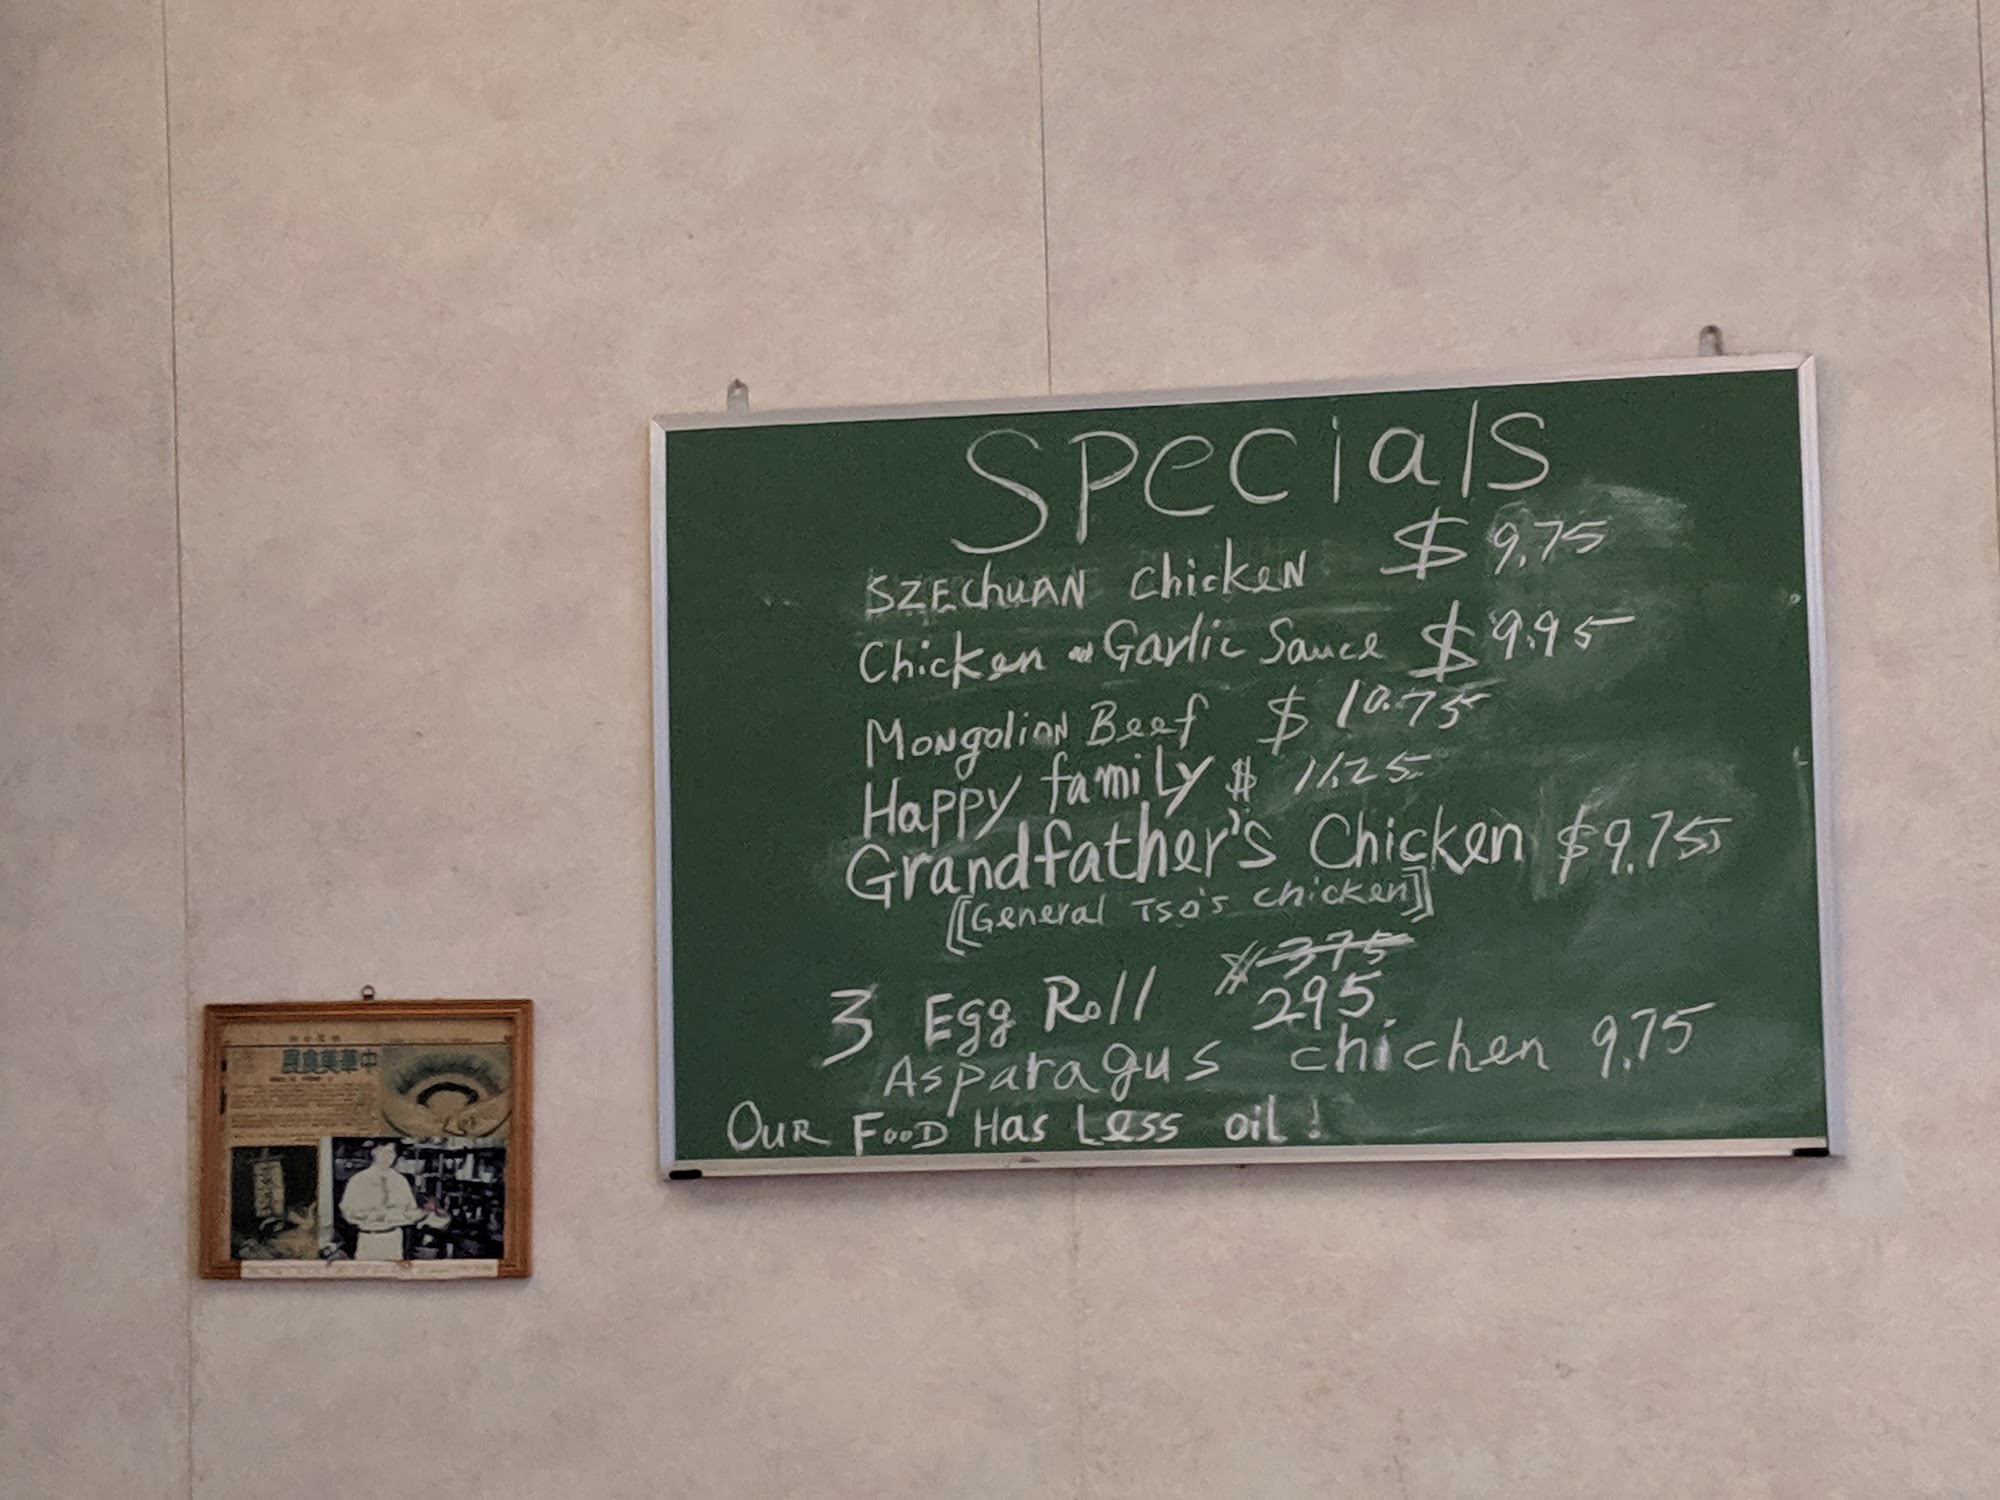 Specials
SZEChuAN Chicken $ 9.75
Chicken w Garlic Sauce $ 9.95
MoNgoliaN Beef $ 10.75
Happy family $ 11.25
Grandfather's Chicken $9.75
[[General Tso's chicken]]
$ 375
3 Egg Roll 295
Asparagus chichen 9.75
OUR FooD Has Less oil!
民食美華中